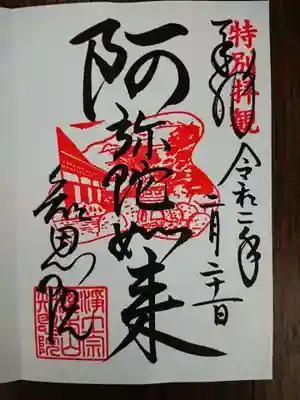 特別拝観
奉拝
令和二年
二月二十一日
阿弥陀如来
知恩院
浄土宗